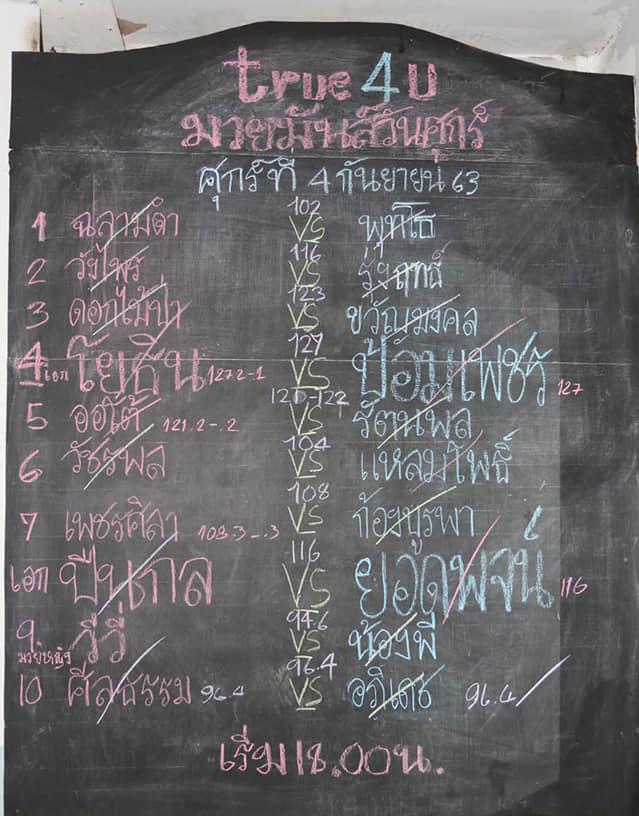 true 4 U
มวยมันส์วันศุกร์
ศุกร์ที่ 4 กันยายน 63
1 ฉลามดำ 102 VS พุทโธ
2 วัยไพร 116 VS
3 ดอกไม้ป่า 123 VS ขวัญมงคล
4 เอก โยธิน 127.2-1 127 VS ป้อมเพชร 127
5 ออโต้ 121.2-.2 120-122 VS รัตนพล
6 วัชรพล 104 VS แหลมโพธิ์
7 เพชรศิลา 108.3-.3 108 VS ก้องบูรพา
เอก ปืนกล 116 VS ยอดพจน์ 116
9 มวยหญิง วีวี่ 94.6 VS น้องพี
10 ศีลธรรม 96.4 96.4 VS อวิเดช 96.4
เริ่ม 18.00 น.